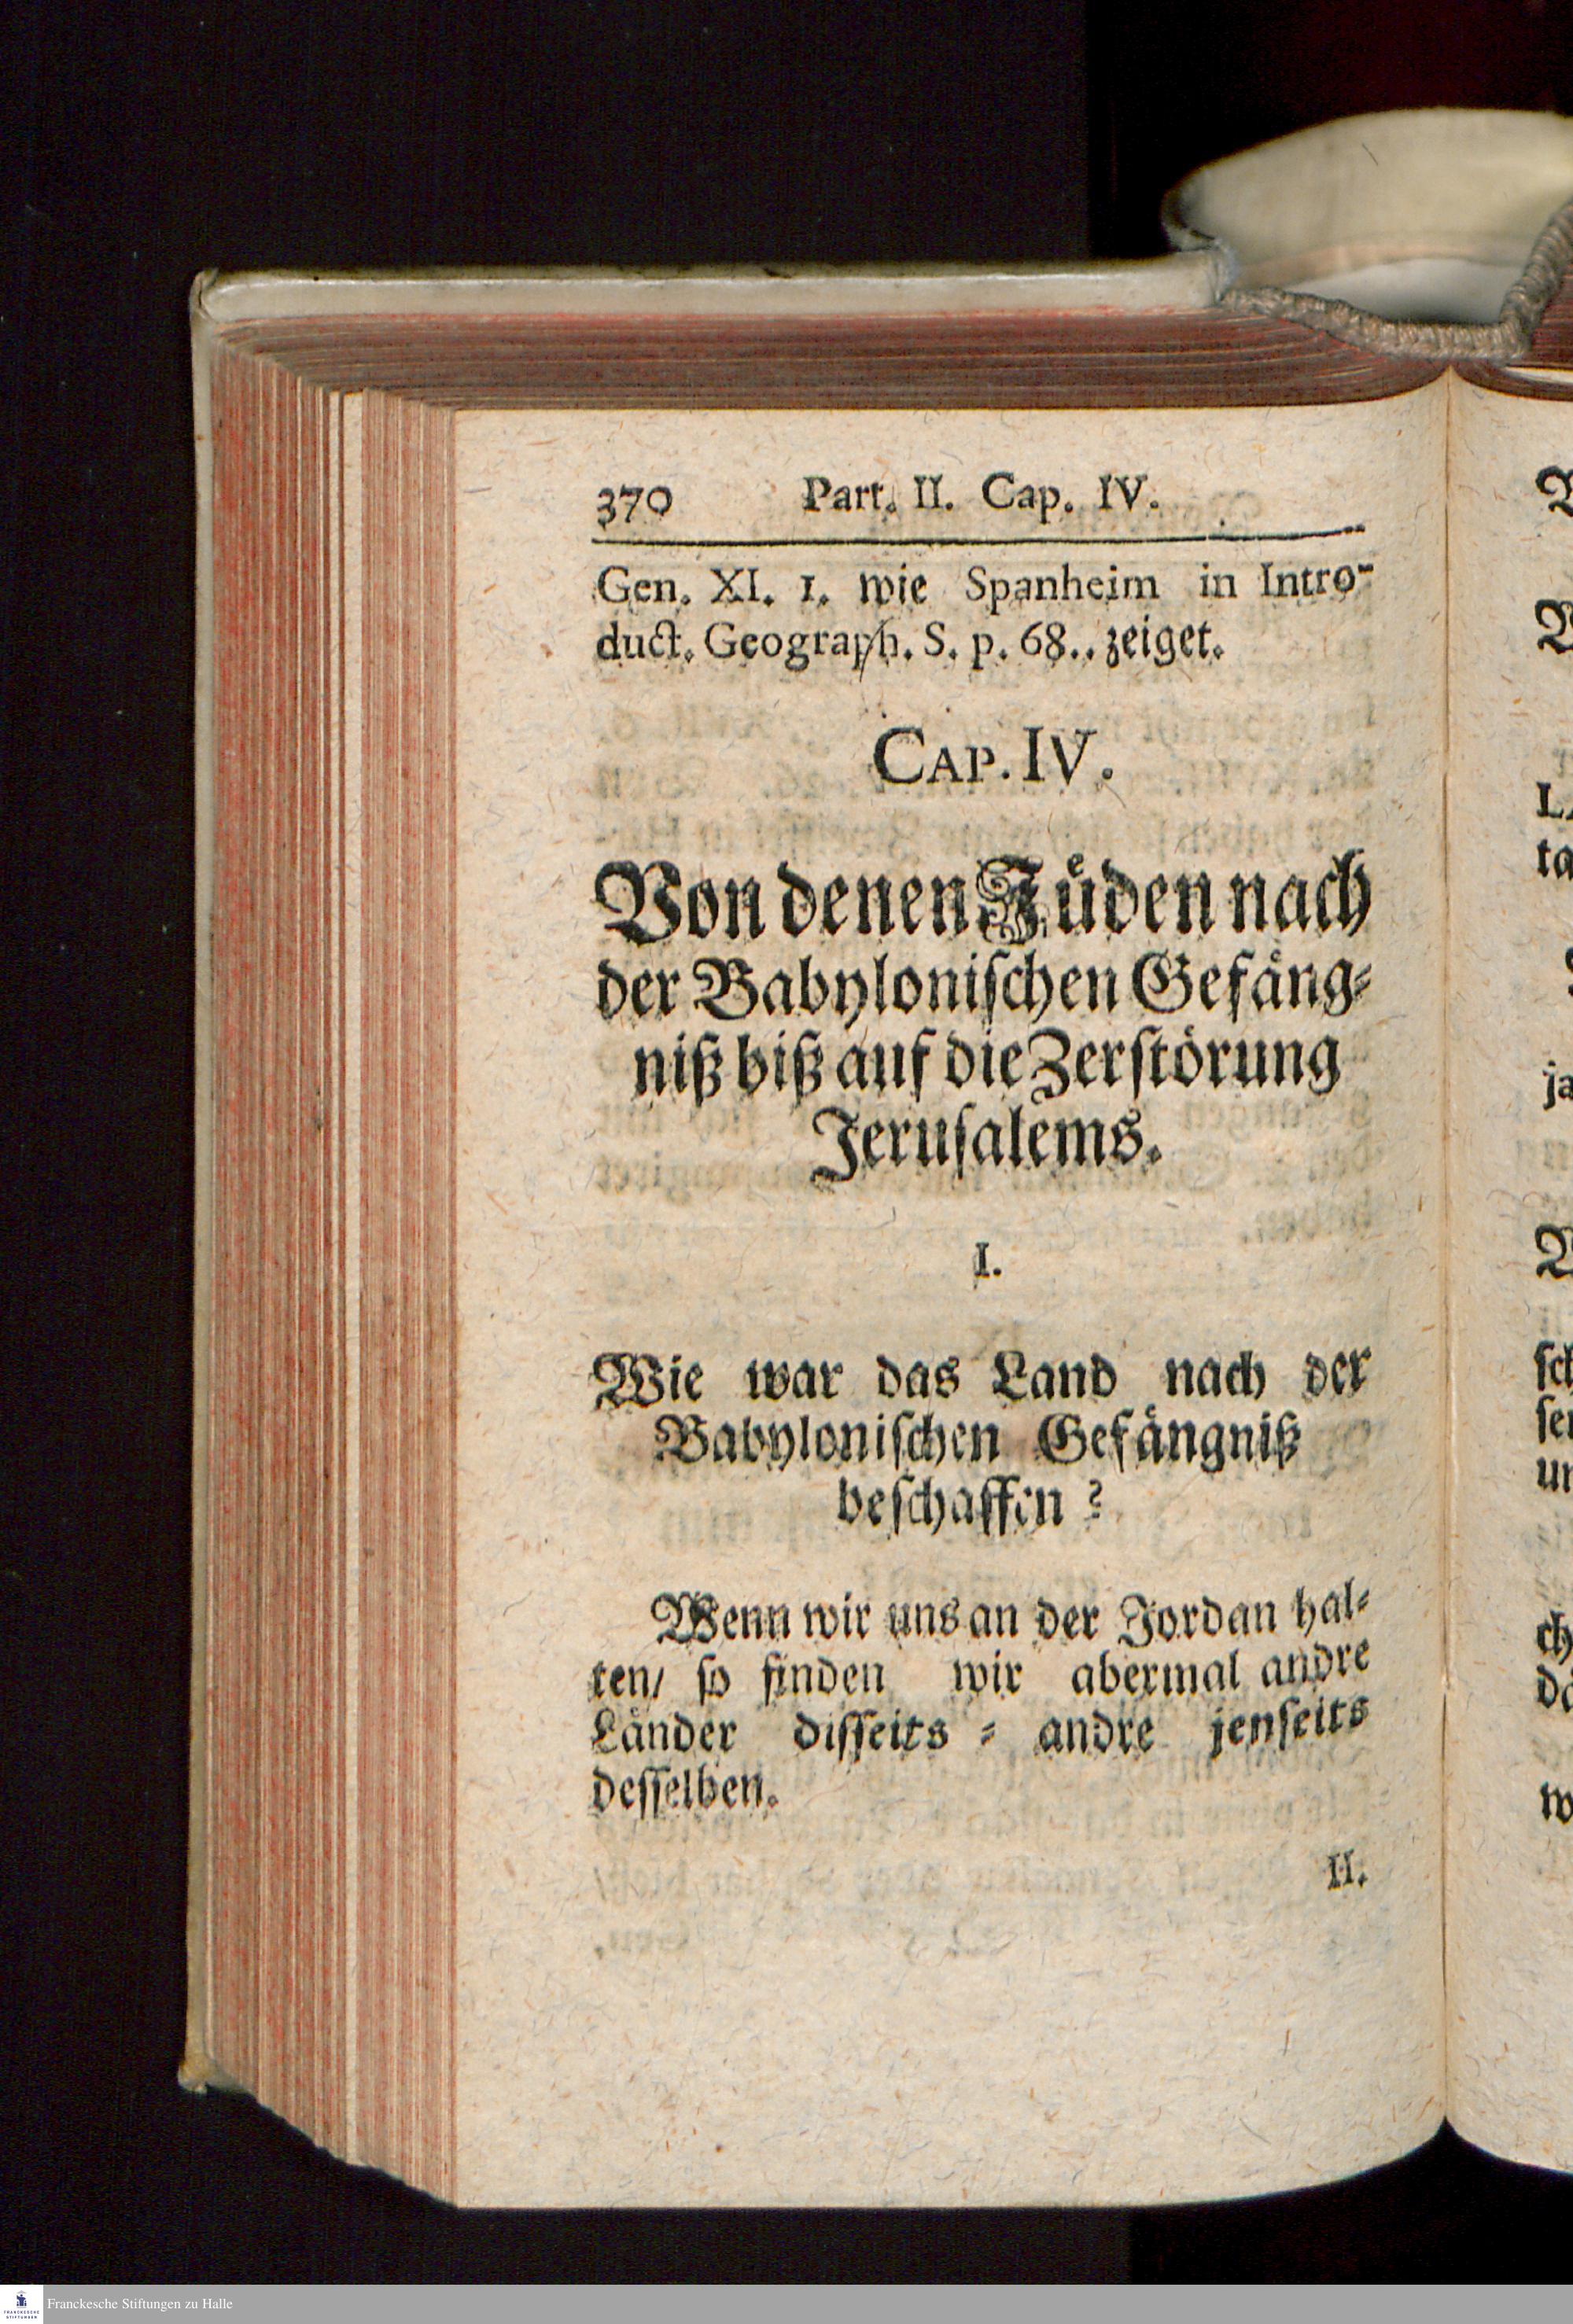 370 Part. II. Cap. IV.
Gen. XI. 1. wie Spanheim in Intro-
duct. Geograph. S. p. 68.. zeiget.
CAP. IV.
Von denen Jüden nach
der Babylonischen Gefäng-
niß biß auf die Zerstörung
Jerusalems.
I.
Wie war das Land nach der
Babylonischen Gefängniß
beschaffen?
Wenn wir uns an der Jordan hal-
ten/ so finden wir abermal andre
Länder disseits - andre jenseits
desselben.
II.
Franckesche Stiftungen zu Halle
FRANCKESCHE
STIFTUNGEN